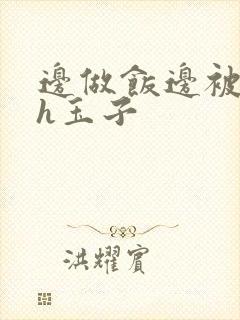 邊做飯邊被
h玉子
洪耀賓